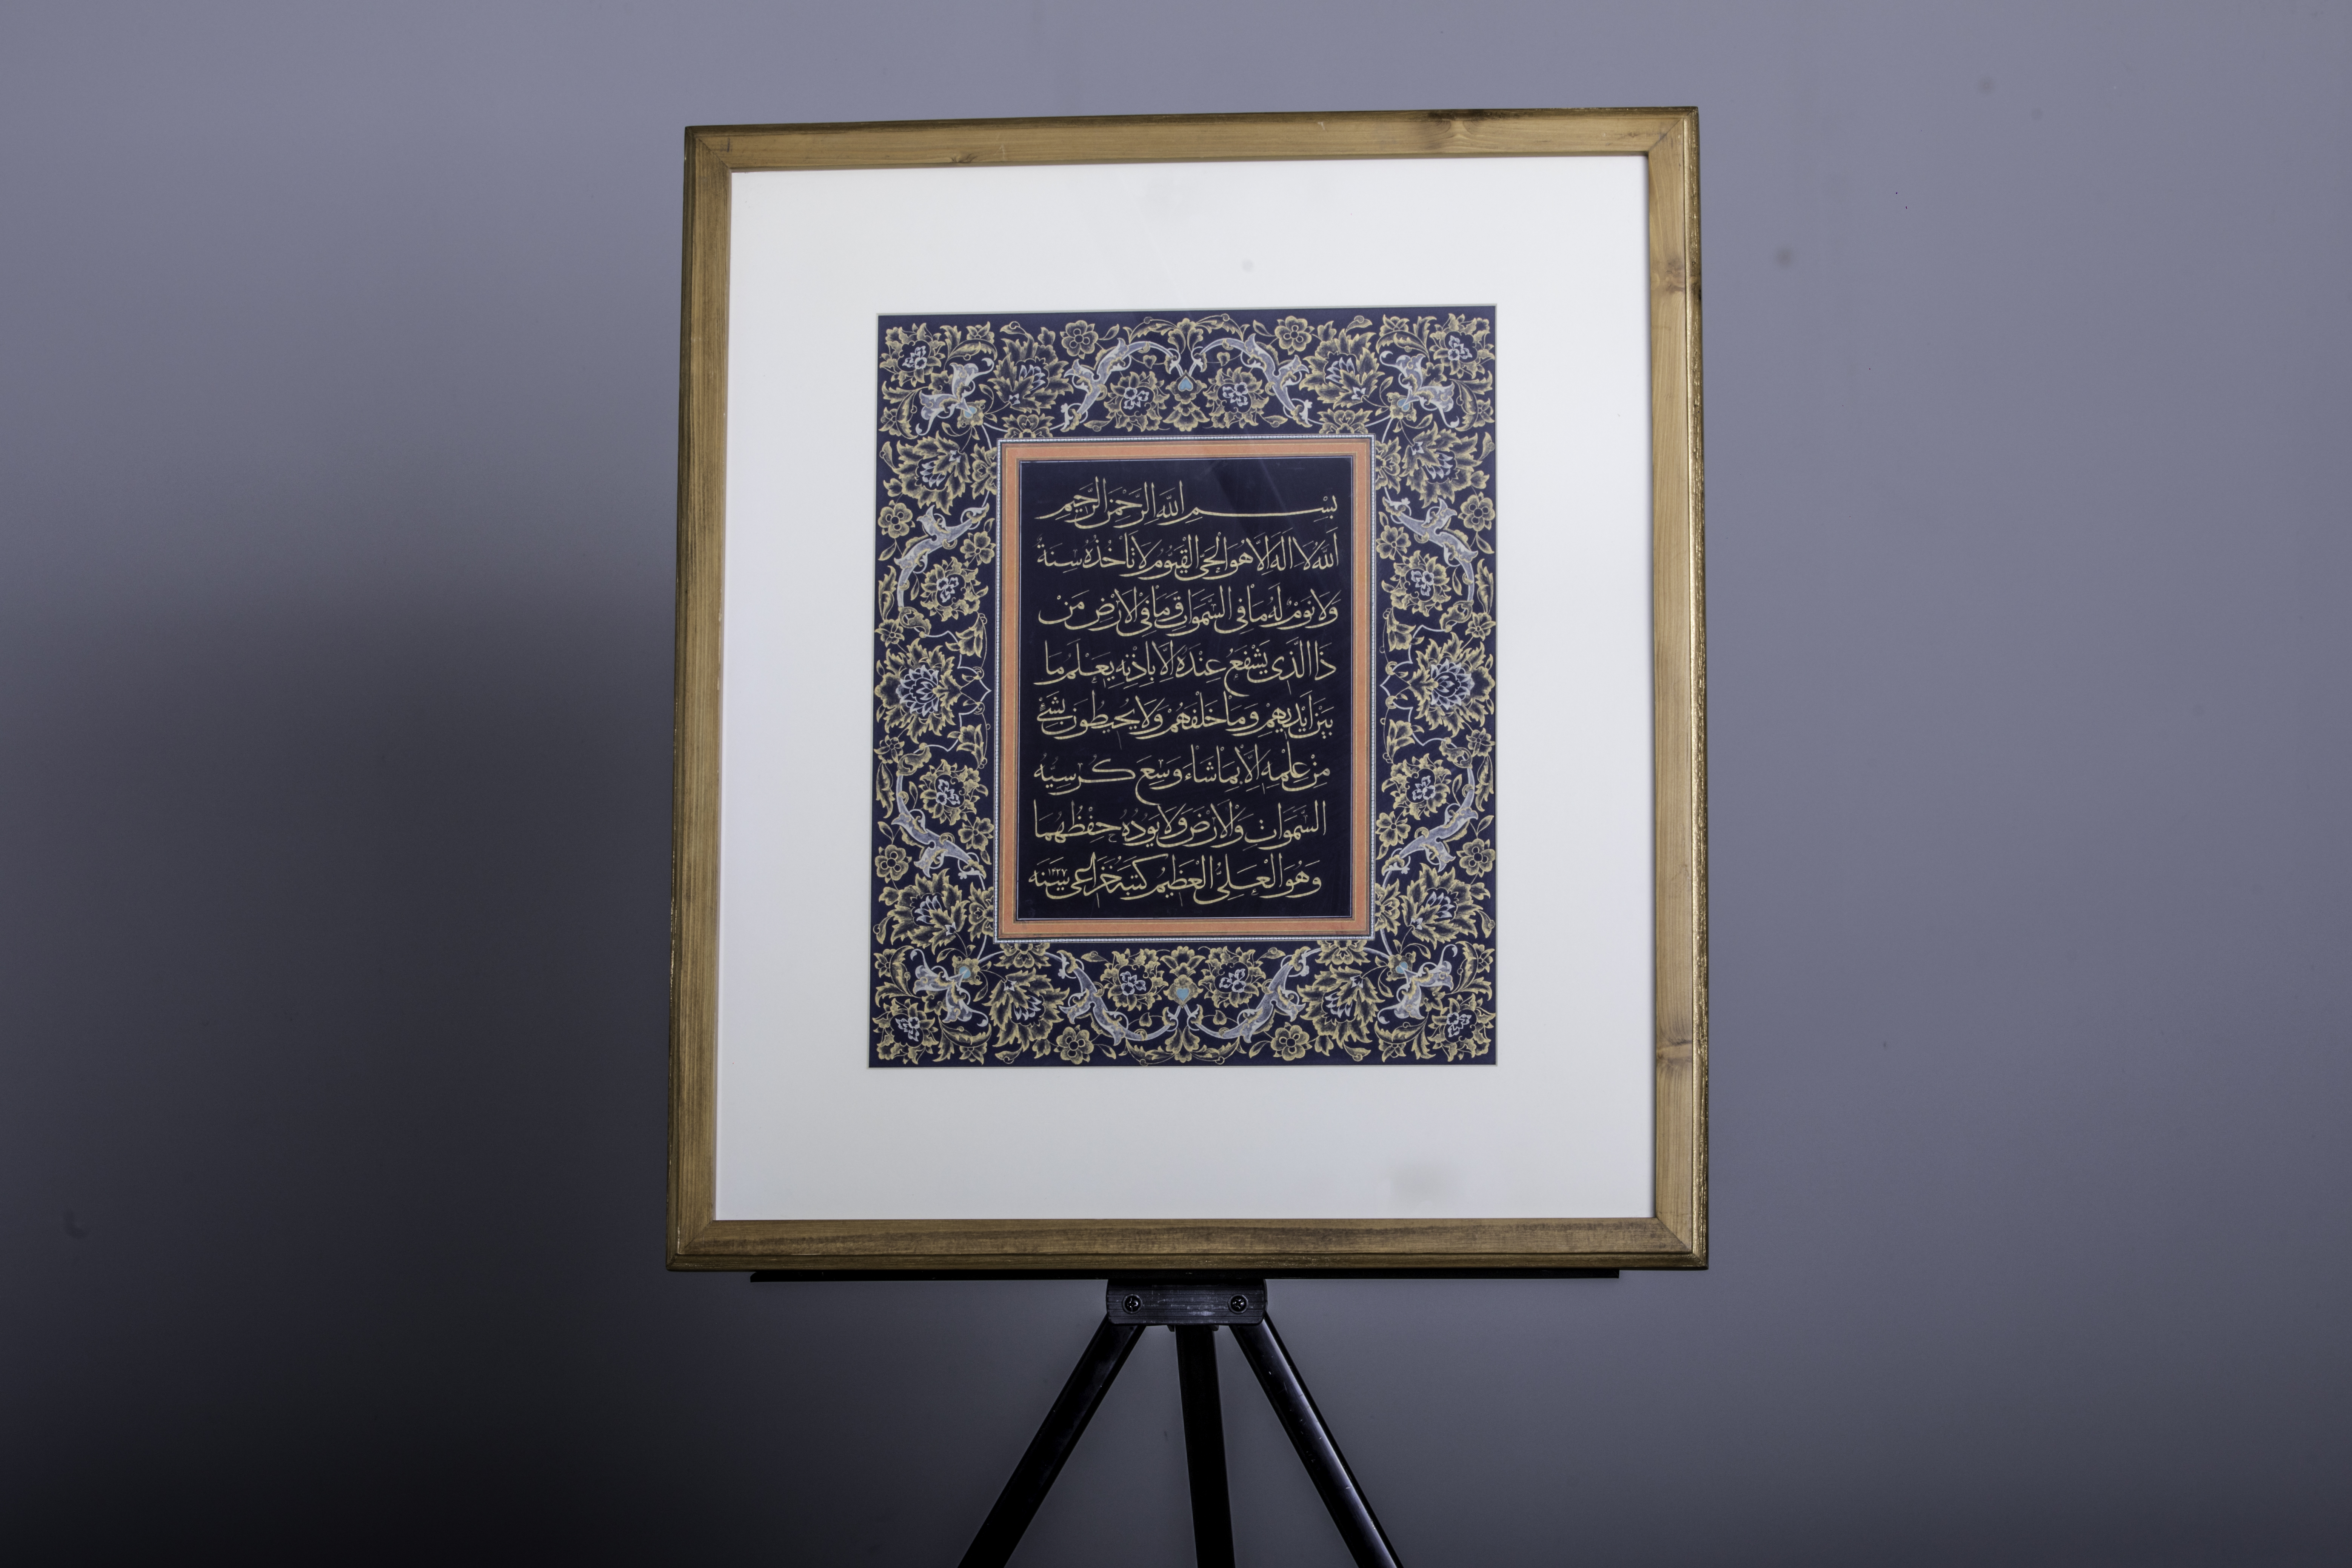 بِسْمِ اللّٰهِ الرَّحْمٰنِ الرَّحِيمِ
اَللّٰهُ لَا اِلٰهَ اِلَّا هُوَ الْحَیُّ الْقَيُّومُ لَا تَأْخُذُهُ سِنَةٌ
وَلَا نَوْمٌ لَهُ مَا فِی السَّمٰوَاتِ وَمَا فِی الْاَرْضِ مَنْ
ذَا الَّذِی يَشْفَعُ عِنْدَهُ اِلَّا بِاِذْنِهِ يَعْلَمُ مَا
بَيْنَ اَيْدِيهِمْ وَمَا خَلْفَهُمْ وَلَا يُحِيطُونَ بِشَیْءٍ
مِنْ عِلْمِهِ اِلَّا بِمَا شَاءَ وَسِعَ كُرْسِيُّهُ
السَّمَوَاتِ وَالْاَرْضَ وَلَا يَؤُدُهُ حِفْظُهُمَا
وَهُوَ الْعَلِیُّ الْعَظِيمُ كتبه خزاعی سنه ۱۴۲۷